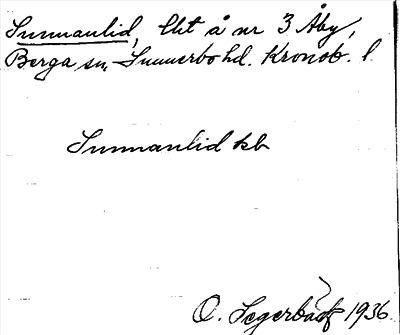 Sunnanlid, lht å nr 3 Åby,
Berga sn, Sunnerbo hd. Kronob. l.
Sunnanlid kb
O. Segerbäck 1936